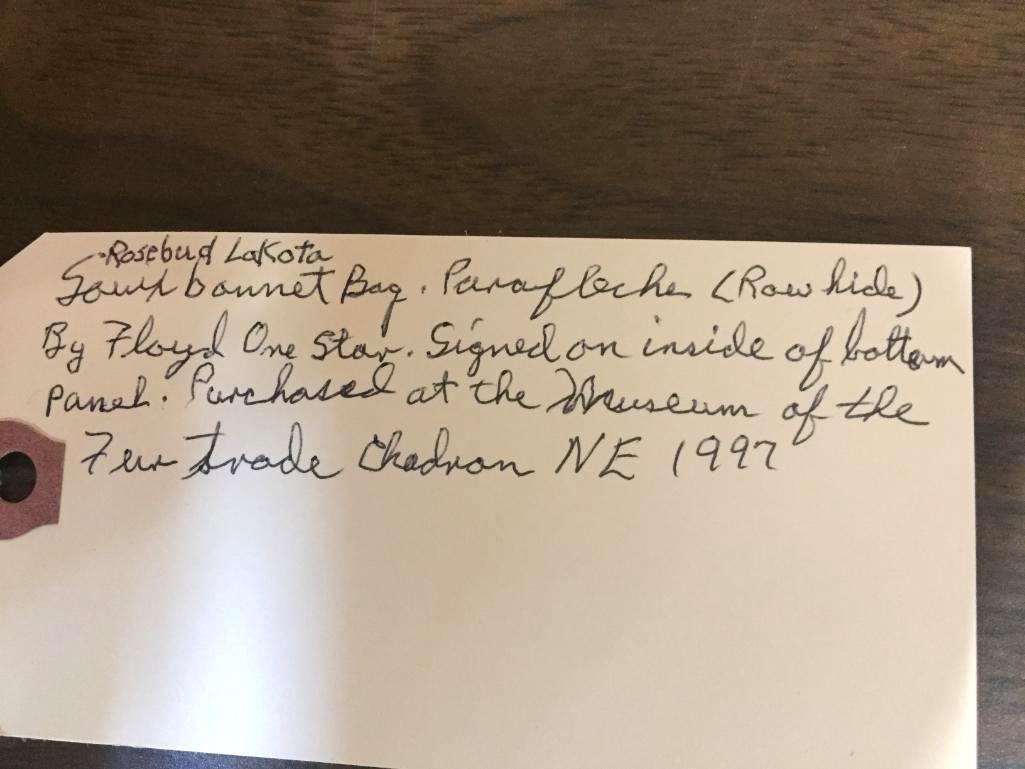 Rosebud Lakota
Sioux bonnet Bag. Parafleche (Rawhide)
By Floyd One Star. Signed on inside of bottom
panel. Purchased at the Museum of the
Fur Trade Chadron NE 1997